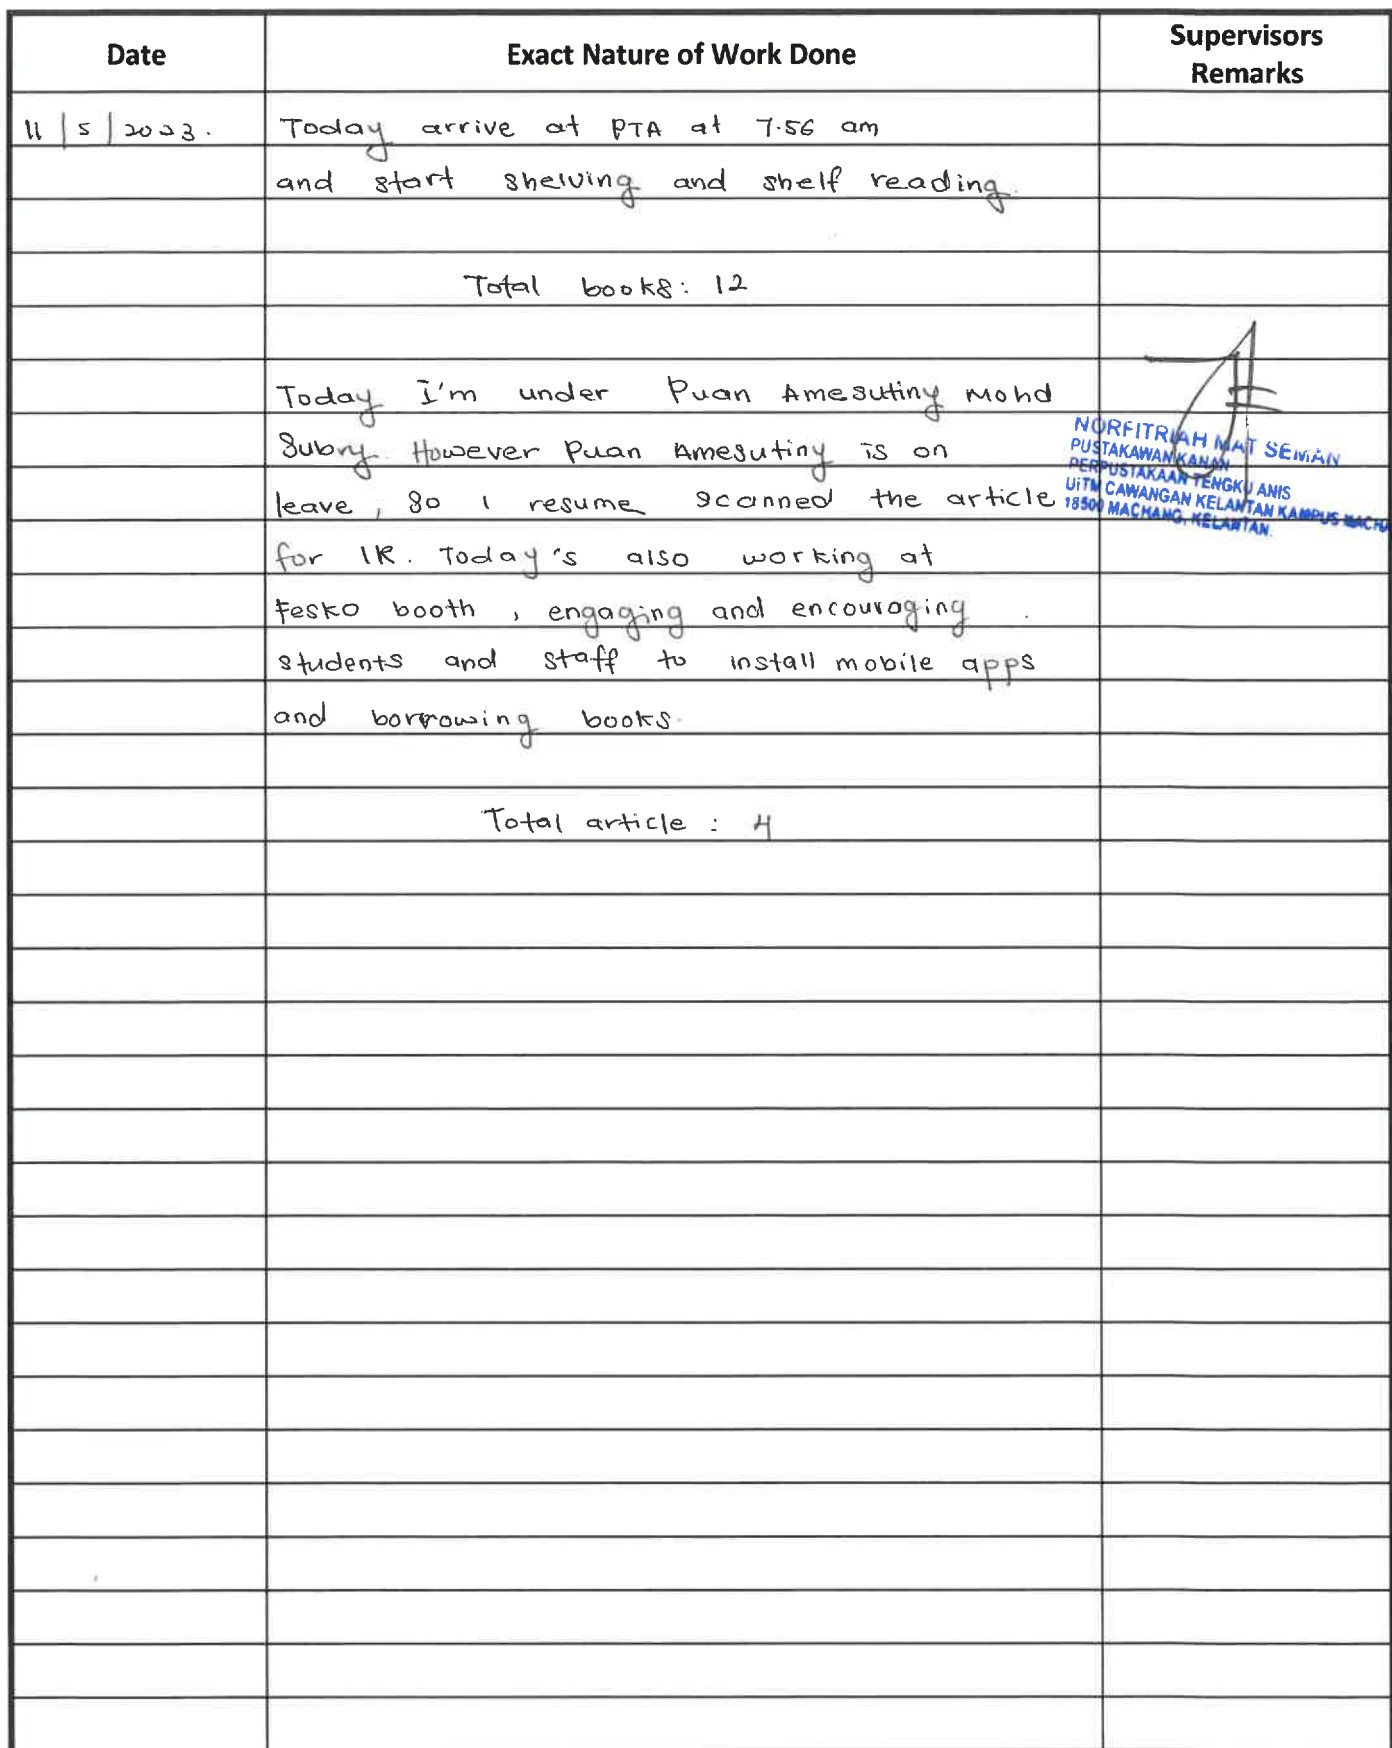 Date
Exact Nature of Work Done
Supervisors
Remarks
11/5/2023.
Today arrive at PTA at 7.56 am
and start shelving and shelf reading.
Total books: 12
Today I'm under Puan Amesutiny Mohd
Subry. However Puan Amesutiny is on
leave, so I resume scanned the article
for IR. Today's also working at
Fesko booth, engaging and encouraging
students and staff to install mobile apps
and borrowing books.
Total article : 4
NORFITRIAH MAT SEMAN
PUSTAKAWAN KANAN
PERPUSTAKAAN TENGKU ANIS
UiTM CAWANGAN KELANTAN KAMPUS MACHANG
18500 MACHANG, KELANTAN.